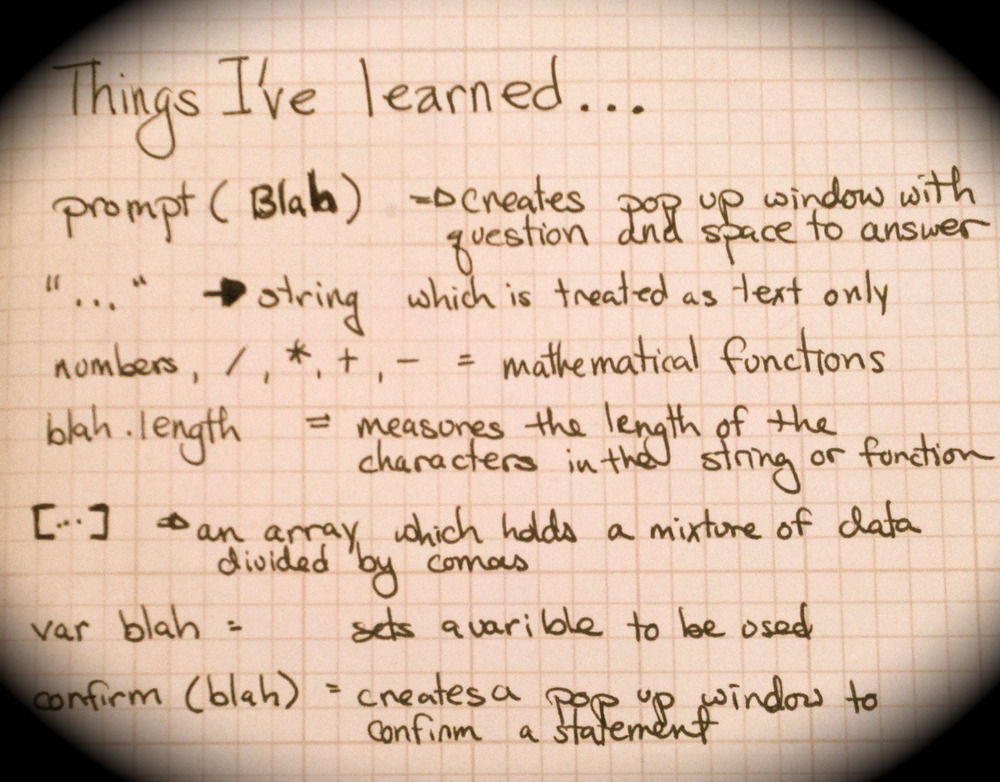 Things I've learned...
prompt (Blah) ⇒ creates pop up window with
question and space to answer
"..." → string which is treated as text only
numbers, /, *, +, - = mathematical functions
blah.length = measures the length of the
characters in the string or function
[...] ⇒ an array which holds a mixture of data
divided by comas
var blah = sets a varible to be used
confirm (blah) = creates a pop up window to
confirm a statement